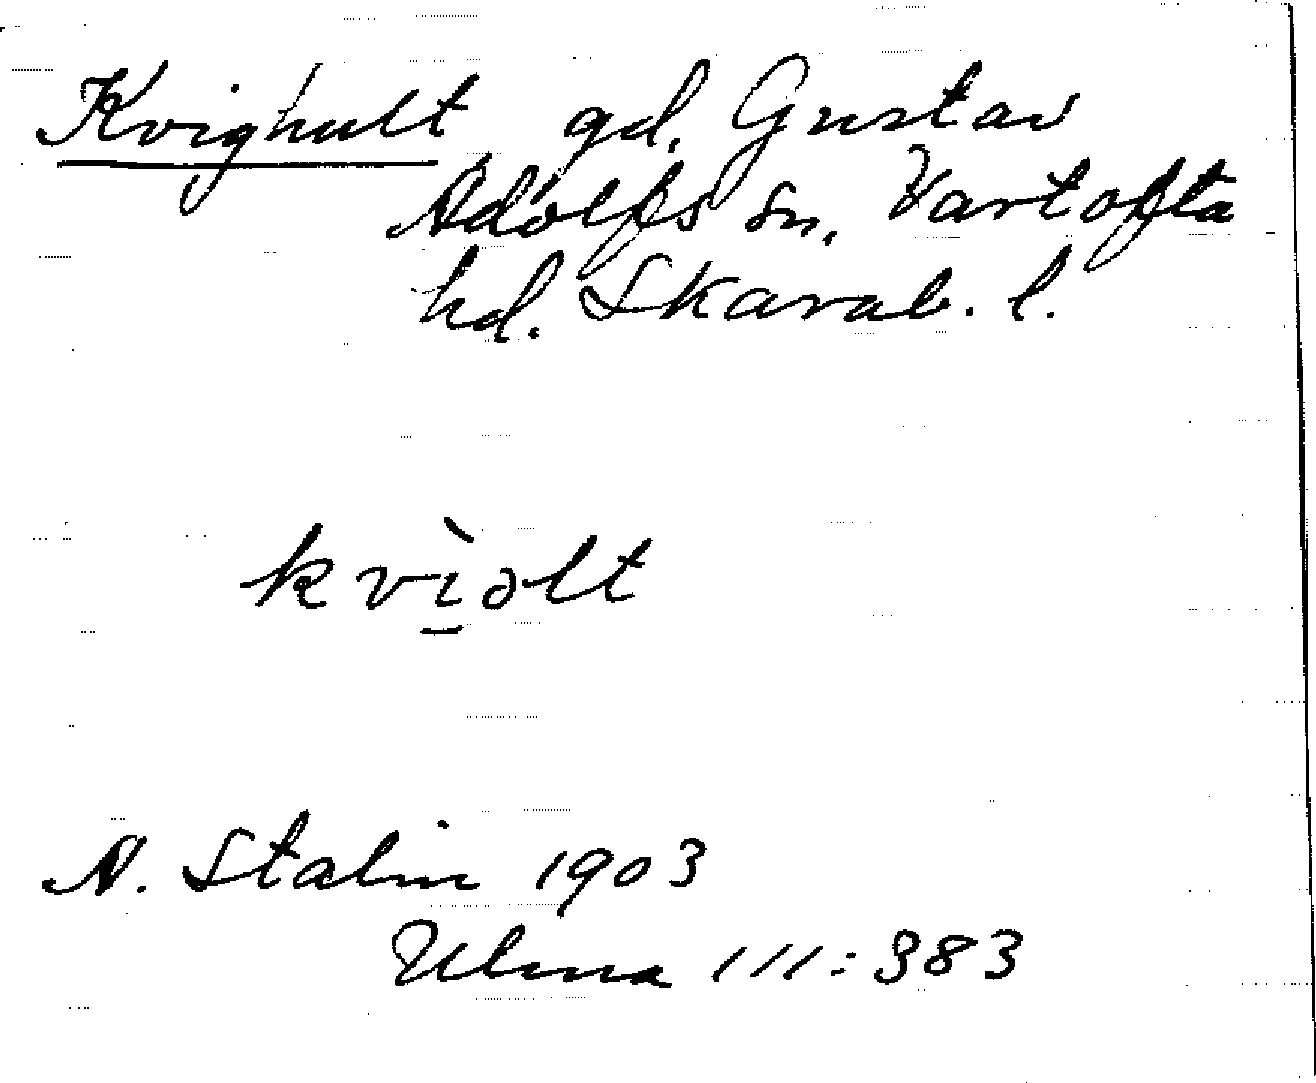 Kvighult gd. Gustav
Adolfs sn. Vartofta
hd. Skarab. l.
kvì̠ əlt
A. Stalin 1903
Ulma 111:383